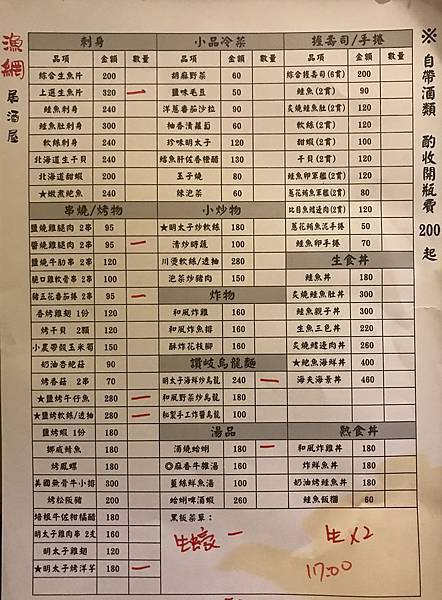 漁網
居酒屋
※自帶酒類 酌收開瓶費200起
刺身
品項 金額 數量
綜合生魚片 200
上選生魚片 320 一
鮭魚刺身 240
鮭魚肚刺身 300
軟絲刺身 240
北海道生干貝 240
北海道甜蝦 200
★嫩煮鮑魚 240
串燒/烤物
鹽燒雞腿肉 2串 95
醬燒雞腿肉 2串 95 一
鹽燒牛肋串 2串 120
脆口雞軟骨串 2串 100
豬五花番茄捲 2串 95 一
香烤雞翅 1份 120
烤干貝 2顆 120
小農帶殼玉米筍 150
奶油杏鮑菇 90
烤香菇 2串 70
★鹽烤午仔魚 280 一
★鹽烤軟絲/透抽 280 一
鹽烤蝦 1份 180
挪威鯖魚 180
烤鳳螺 180
美國無骨牛小排 300
烤松阪豬 200
培根牛佐柑橘醋 180
明太子雞肉串 2支 160
明太子雞翅 120
★明太子烤洋芋 180 一
小品冷菜
品項 金額 數量
胡麻野菜 60
鹽味毛豆 50
洋蔥番茄沙拉 90
柚香漬蘿蔔 60
珍味明太子 120
鱈魚肝佐香橙醋 130
玉子燒 80
辣泡菜 60
小炒物
★明太子炒軟絲 180
清炒時蔬 100
川燙軟絲/透抽 280
泡菜炒豬肉 150
炸物
和風炸雞 160
和風炸魚排 160
酥炸花枝腳 160
讚岐烏龍麵
明太子海鮮炒烏龍 240 一
和風野菜炒烏龍 180
和製手工炸醬烏龍 100
湯品
酒燒蛤蜊 180 一
◎麻香牛雜湯 160
薑絲鮮魚湯 100
蛤蜊啤酒蝦 260
黑板菜單:
生蠔 一
握壽司/手捲
品項 金額 數量
綜合握壽司(6貫) 200
鮭魚(2貫) 90
炙燒鮭魚肚(2貫) 120
軟絲(2貫) 120
甜蝦(2貫) 100
干貝(2貫) 120
鮭魚卵軍艦(2貫) 80
蔥花鮪魚軍艦(2貫) 80
比目魚鰭邊肉(2貫) 120
蔥花鮪魚泥手捲 50
鮭魚卵手捲 70
生食丼
鮭魚丼 180
炙燒鮭魚丼 300
鮭魚親子丼 300
生魚三色丼 220
炙燒鰭邊肉丼 260
★鮑魚海鮮丼 400
海大海景丼 460
熟食丼
和風炸雞丼 180
炸鮮魚丼 180
奶油烤鮭魚丼 180
鮭魚飯糰 60
生x2
17:00